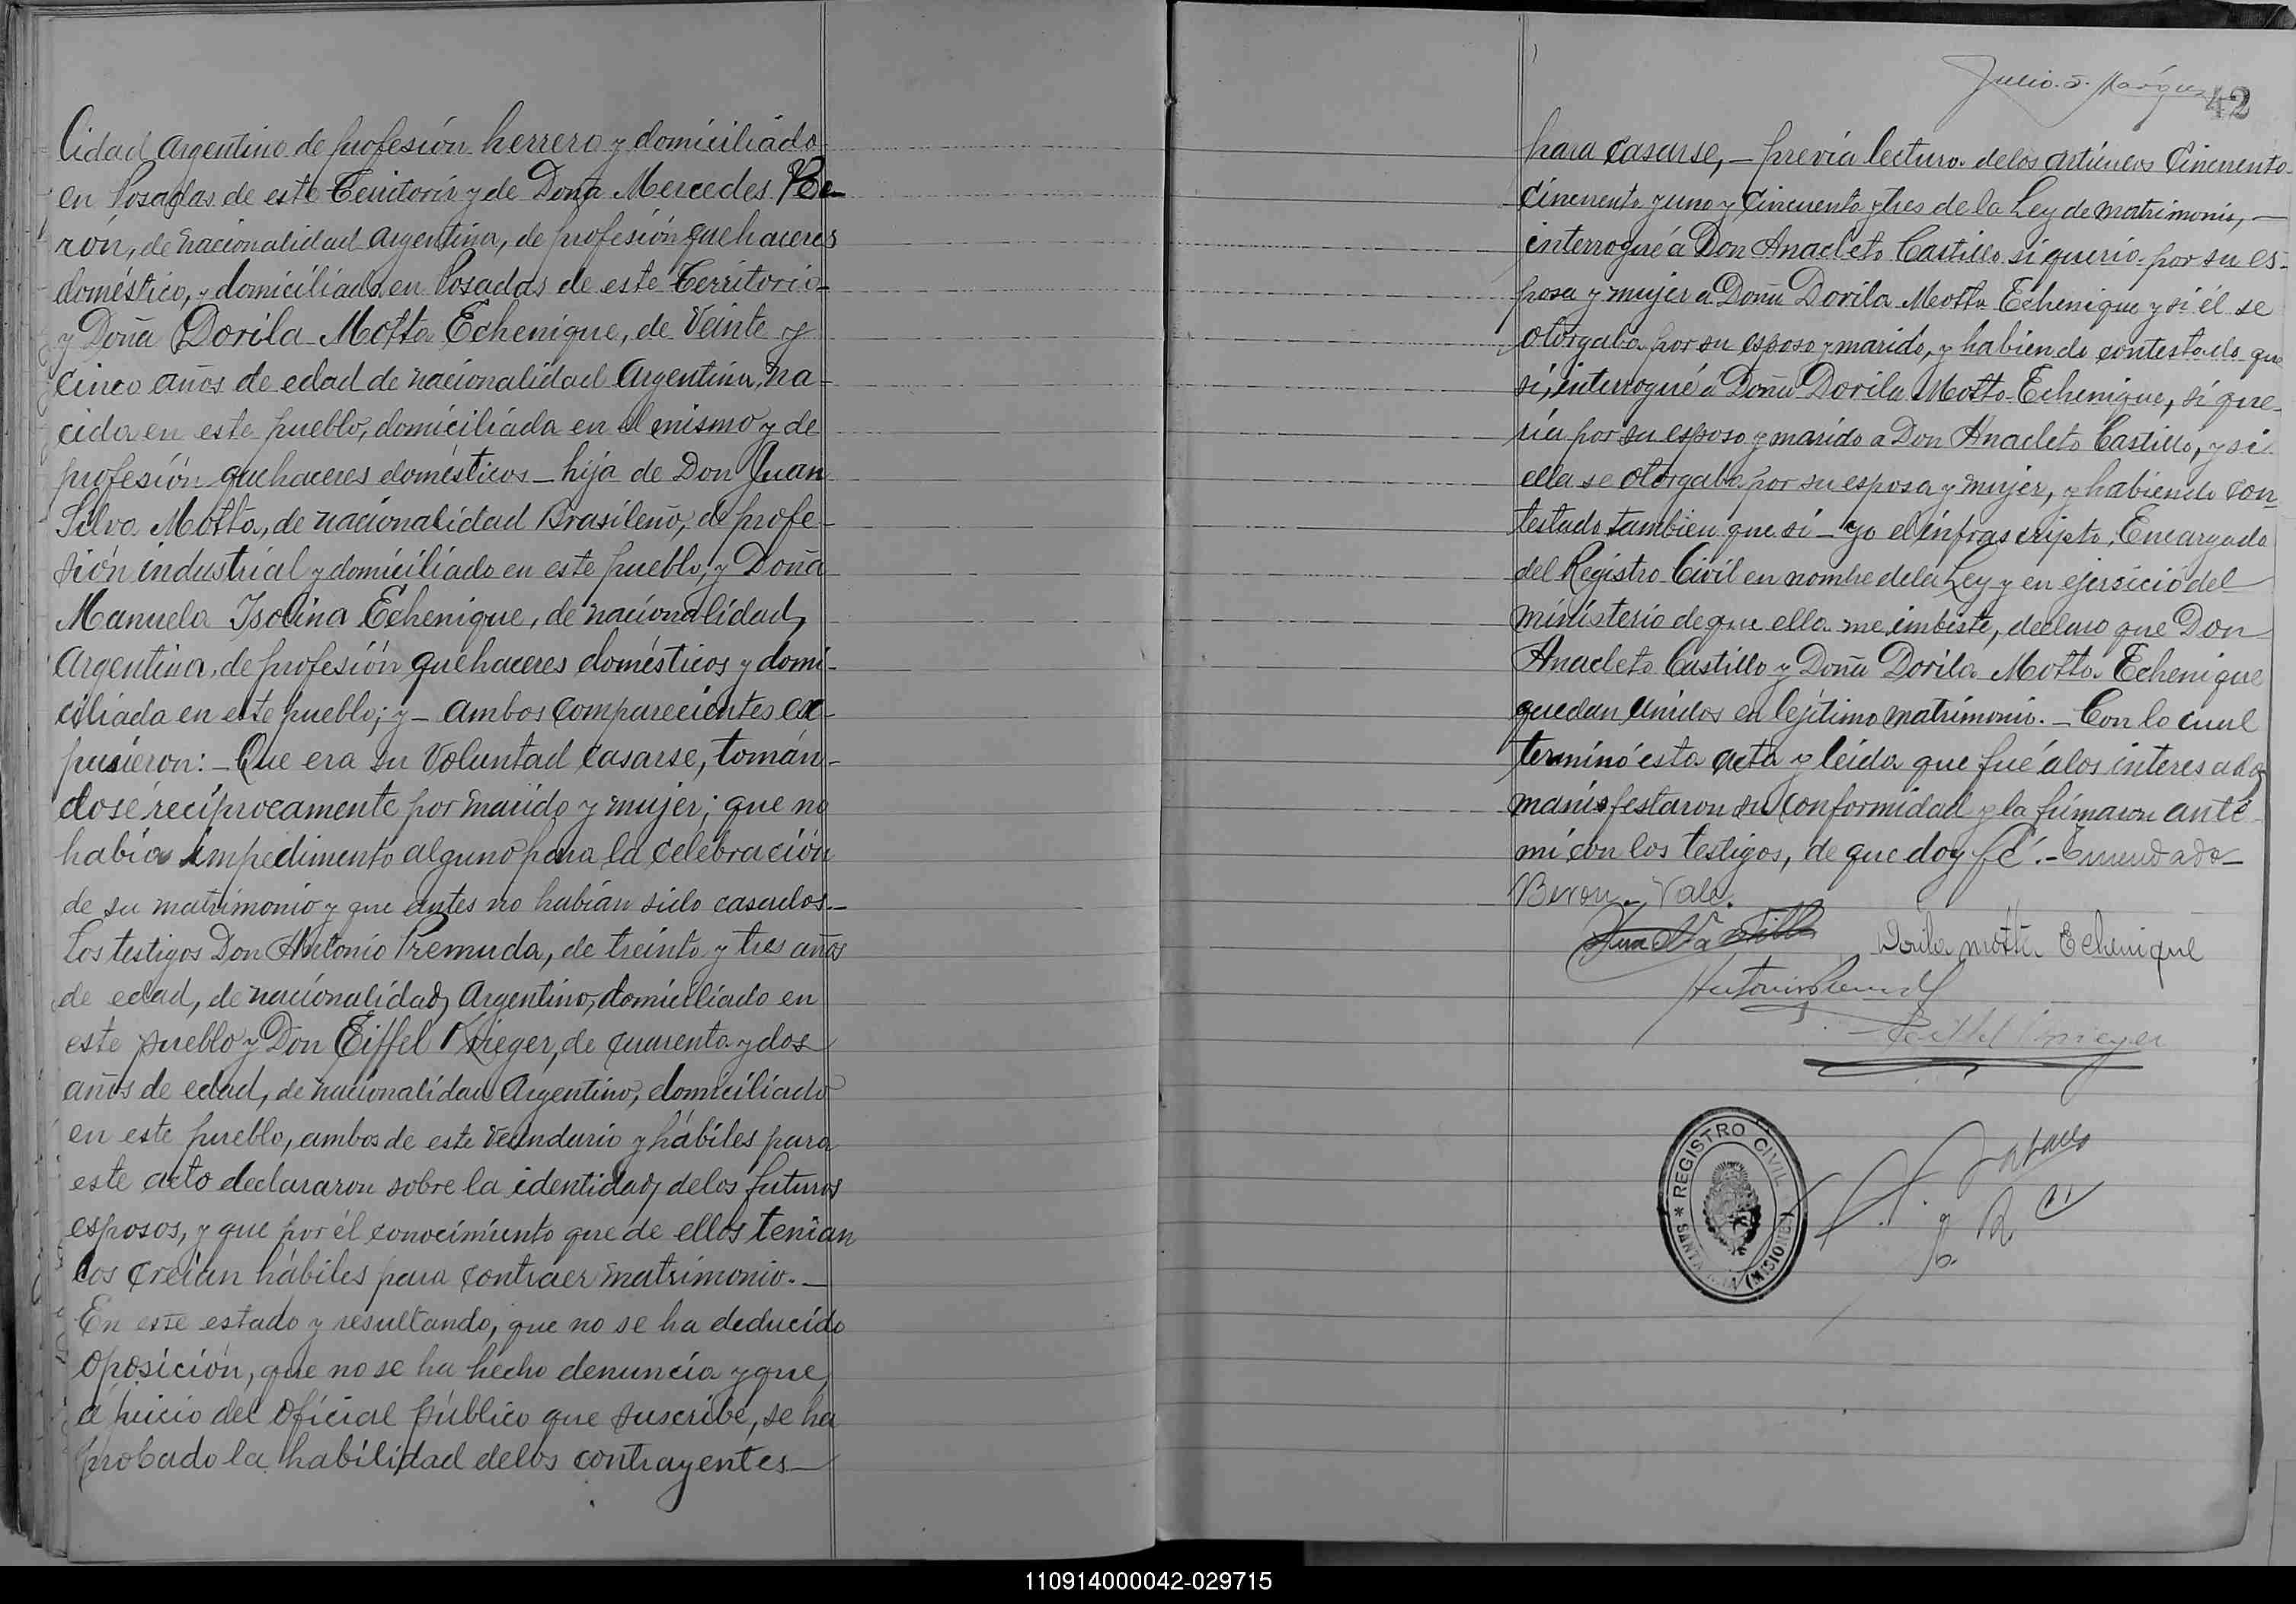 lidad Argentino de profesión herrero y domiciliado
en Posadas de este Territorio y de Doña Mercedes Be-
rón, de nacionalidad Argentina, de profesión quehaceres
doméstico, y domiciliada en Posadas de este Territorio-
y Doña Dorila Motta Echenique, de Veinte y
cinco años de edad de nacionalidad Argentina, na-
cida en este pueblo, domiciliada en el mismo y de
profesión quehaceres domésticos - hija de Don Juan
Silva Motta, de nacionalidad Brasileño, de profe-
sión industrial y domiciliado en este pueblo, y Doña
Manuela Isolina Echenique, de nacionalidad
Argentina, de profesión quehaceres domésticos y domi-
ciliada en este pueblo; y - ambos comparecientes ex-
pusieron: - Que era su Voluntad casarse, tomán-
dose reciprocamente por marido y mujer; que no
había impedimento alguno para la celebración
de su matrimonio y que antes no habían sido casados.-
Los testigos Don Antonio Premuda, de treinta y tres años
de edad, de nacionalidad Argentino, domiciliado en
este pueblo y Don Eiffel Krieger, de cuarenta y dos
años de edad, de nacionalidad Argentino, domiciliado
en este pueblo, ambos de este Vecindario y hábiles para
este acto declararon sobre la identidad de los futuros
esposos, y que por él conocimiento que de ellos tenían
los creían hábiles para contraer matrimonio.-
En este estado y resultando, que no se ha deducido
oposición, que no se ha hecho denuncia y que,
a juicio del oficial público que suscribe, se ha
probado la habilidad de los contrayentes-
Julio S. Márquez
42
para casarse, - previa lectura de los artículos Cincuenta
Cincuenta y uno y Cincuenta y tres de la Ley de matrimonio, -
interrogué á Don Anacleto Castillo si quería por su es-
posa y mujer a Doña Dorila Motta Echenique y si él se
otorgaba por su esposo y marido, y habiendo contestado que
sí, interrogué á Doña Dorila Motta Echenique, si que-
ría por su esposo y marido a Don Anacleto Castillo, y si
ella se otorgaba por su esposa y mujer, y habiendo con-
testado tambien que sí - yo el infrascripto, Encargado
del Registro Civil en nombre de la Ley y en ejersicio del
ministerio de que ella me imbiste, declaro que Don
Anacleto Castillo y Doña Dorila Motta Echenique
quedan Unidos en lejitimo matrimonio. - Con lo cual
terminó esta acta y leida que fué á los interesados
manisfestaron su conformidad y la firmaron ante
mi con los testigos, de que doy fé. - Enmendado-
Beron - Vale.
Dorila motta Echenique
Antonio Premuda
Eiffel Krieger
REGISTRO CIVIL
* SANTA ANA (MISIONES)
110914000042-029715